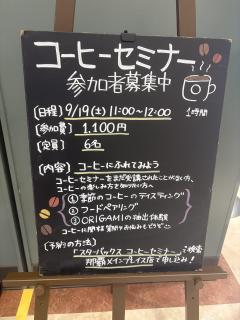 コーヒーセミナー
参加者募集中
〔日程〕 9/19(土) 11:00〜12:00 1時間
〔参加費〕 1,100円
〔定員〕 6名
〔内容〕 コーヒーにふれてみよう
コーヒーセミナーをまだ受講されたことがない方、
コーヒーの楽しみ方を知りたい方へ
① 季節のコーヒーのテイスティング
② フードペアリング
③ ORIGAMIの抽出体験
コーヒーに関する質問やお悩みもどうぞ
〔予約の方法〕
「スターバックス コーヒーセミナー」で検索
那覇メインプレイス店で申し込み!